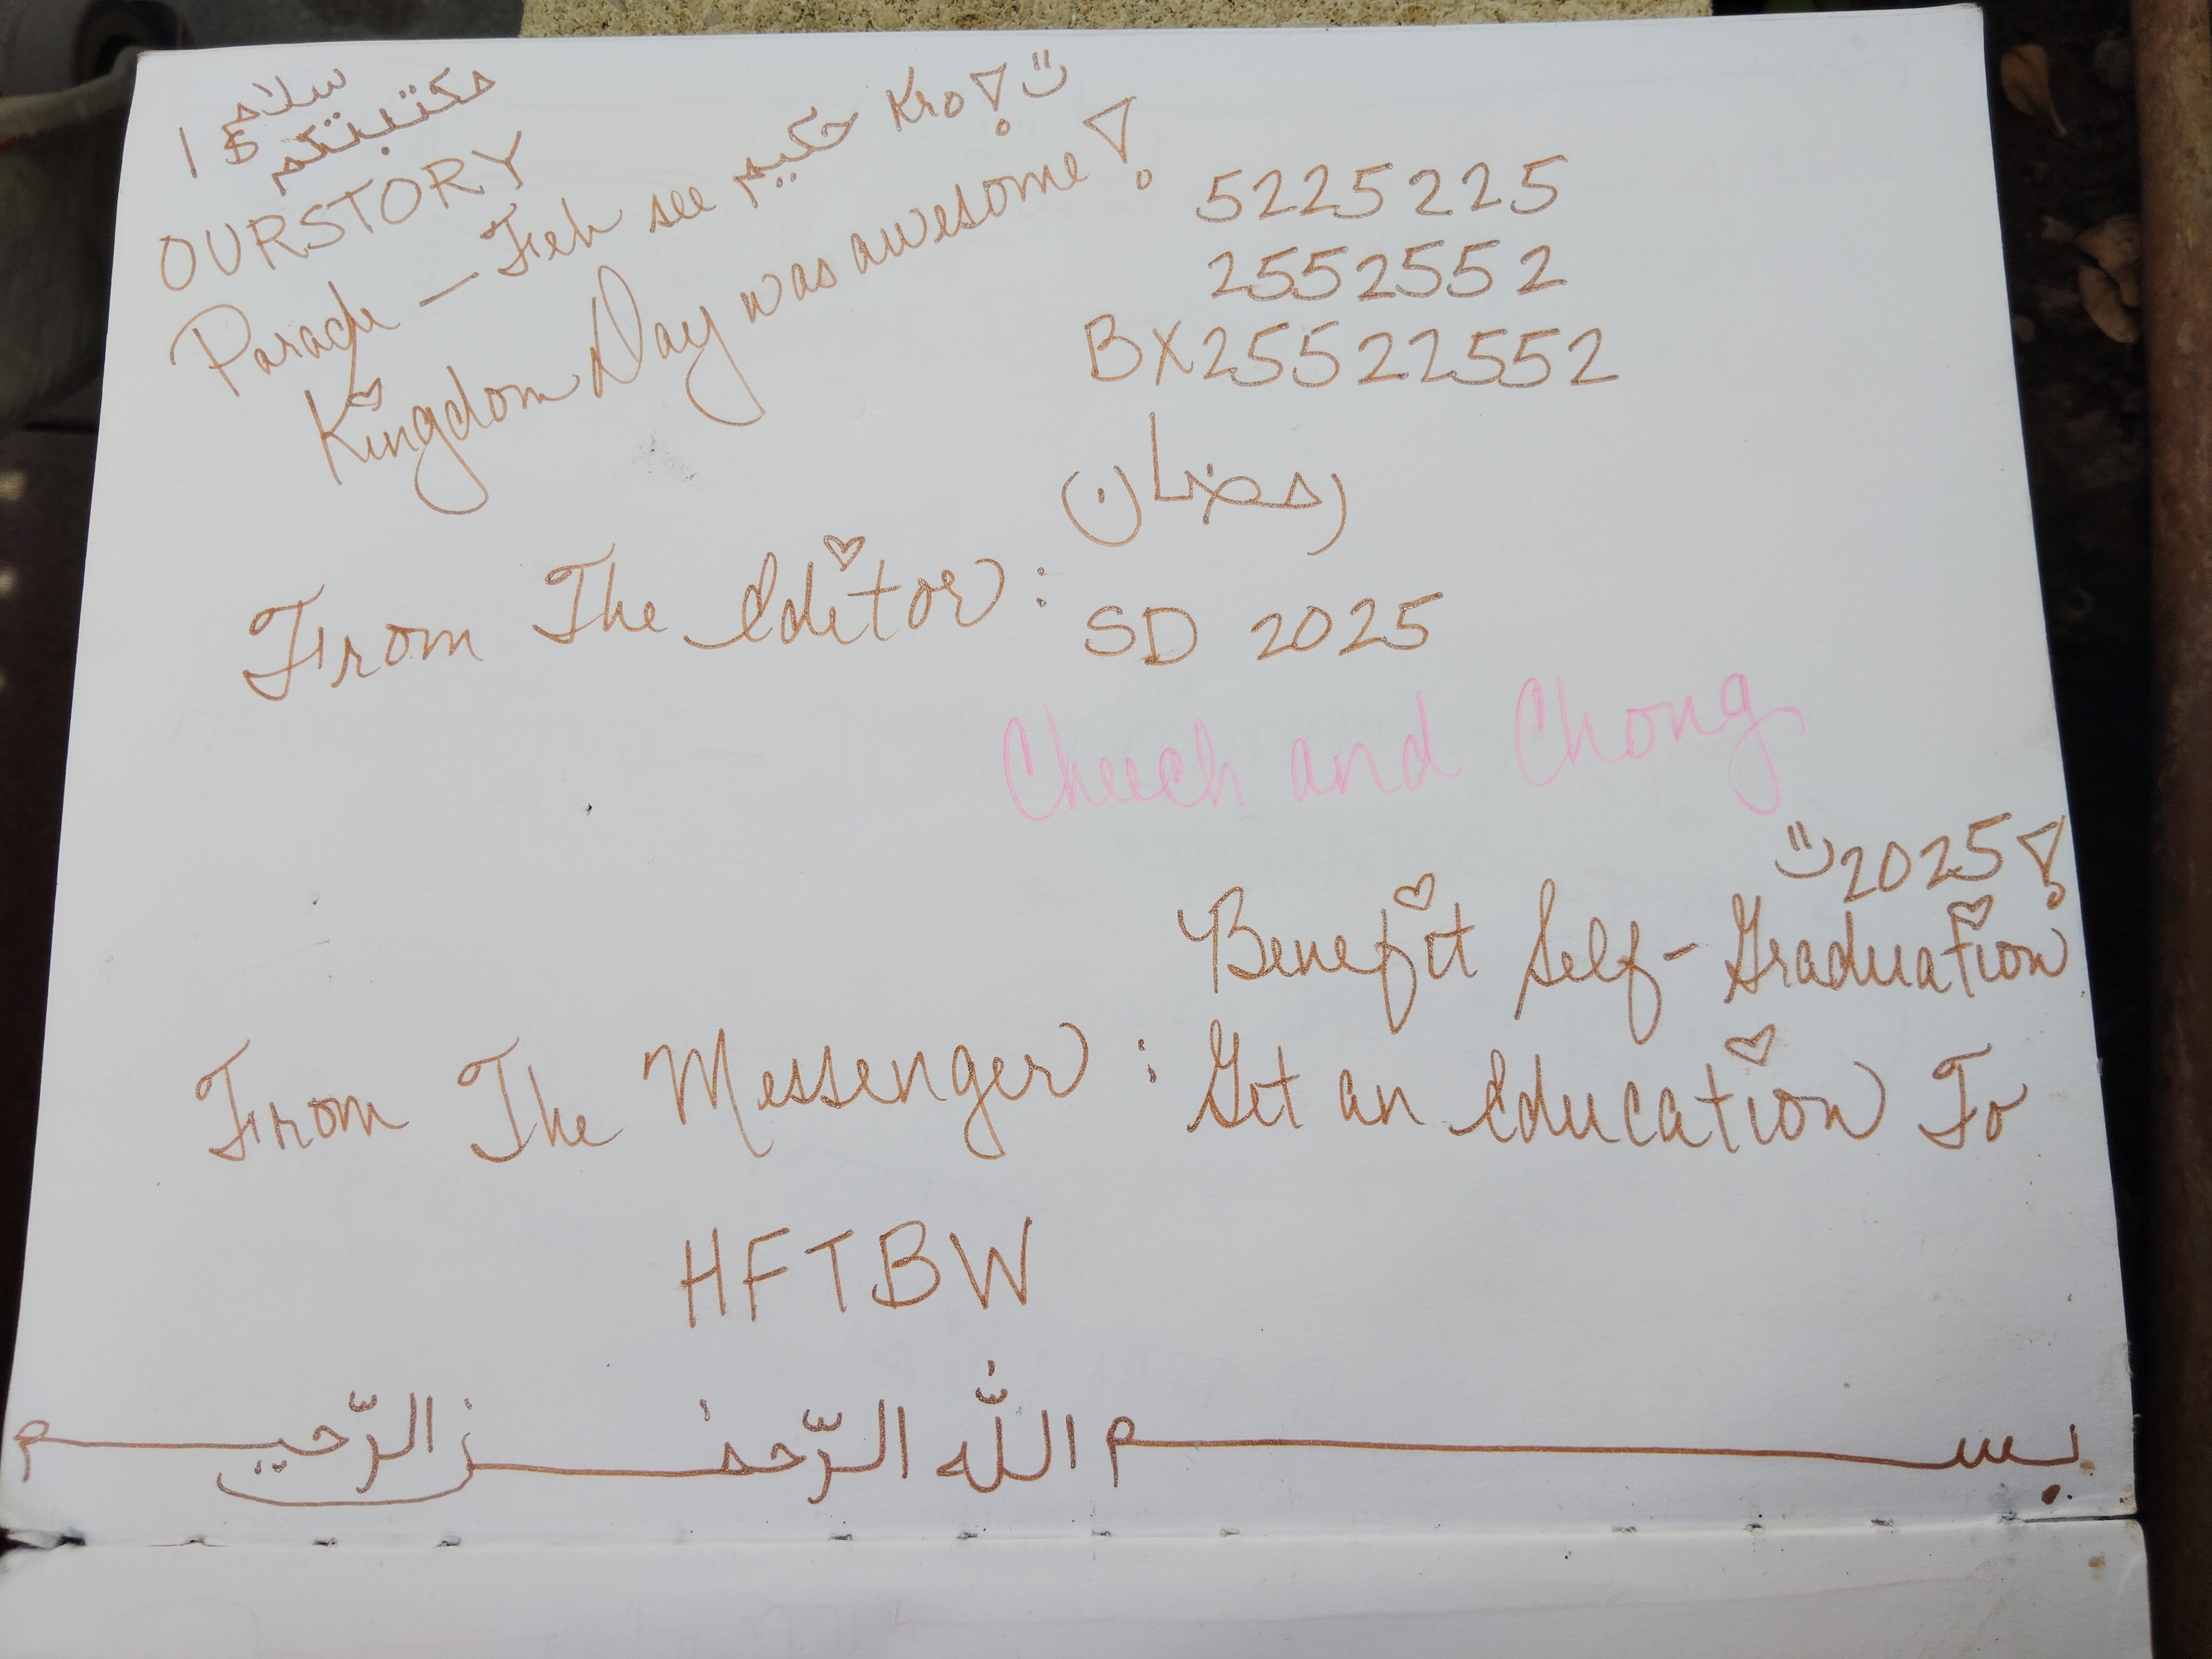 سلام
مكتبتكم
OURSTORY
Parade – Feb see حكيم Kro! 
Kingdom Day was awesome!
5225225
2552552
BX25522552
رمضان
From The Editor: SD 2025
Cheech and Chong
2025!
Benefit Self-Graduation
From The Messenger: Get an Education To
HFTBW
بســـــم الله الرّحمـــن الرّحيـــم